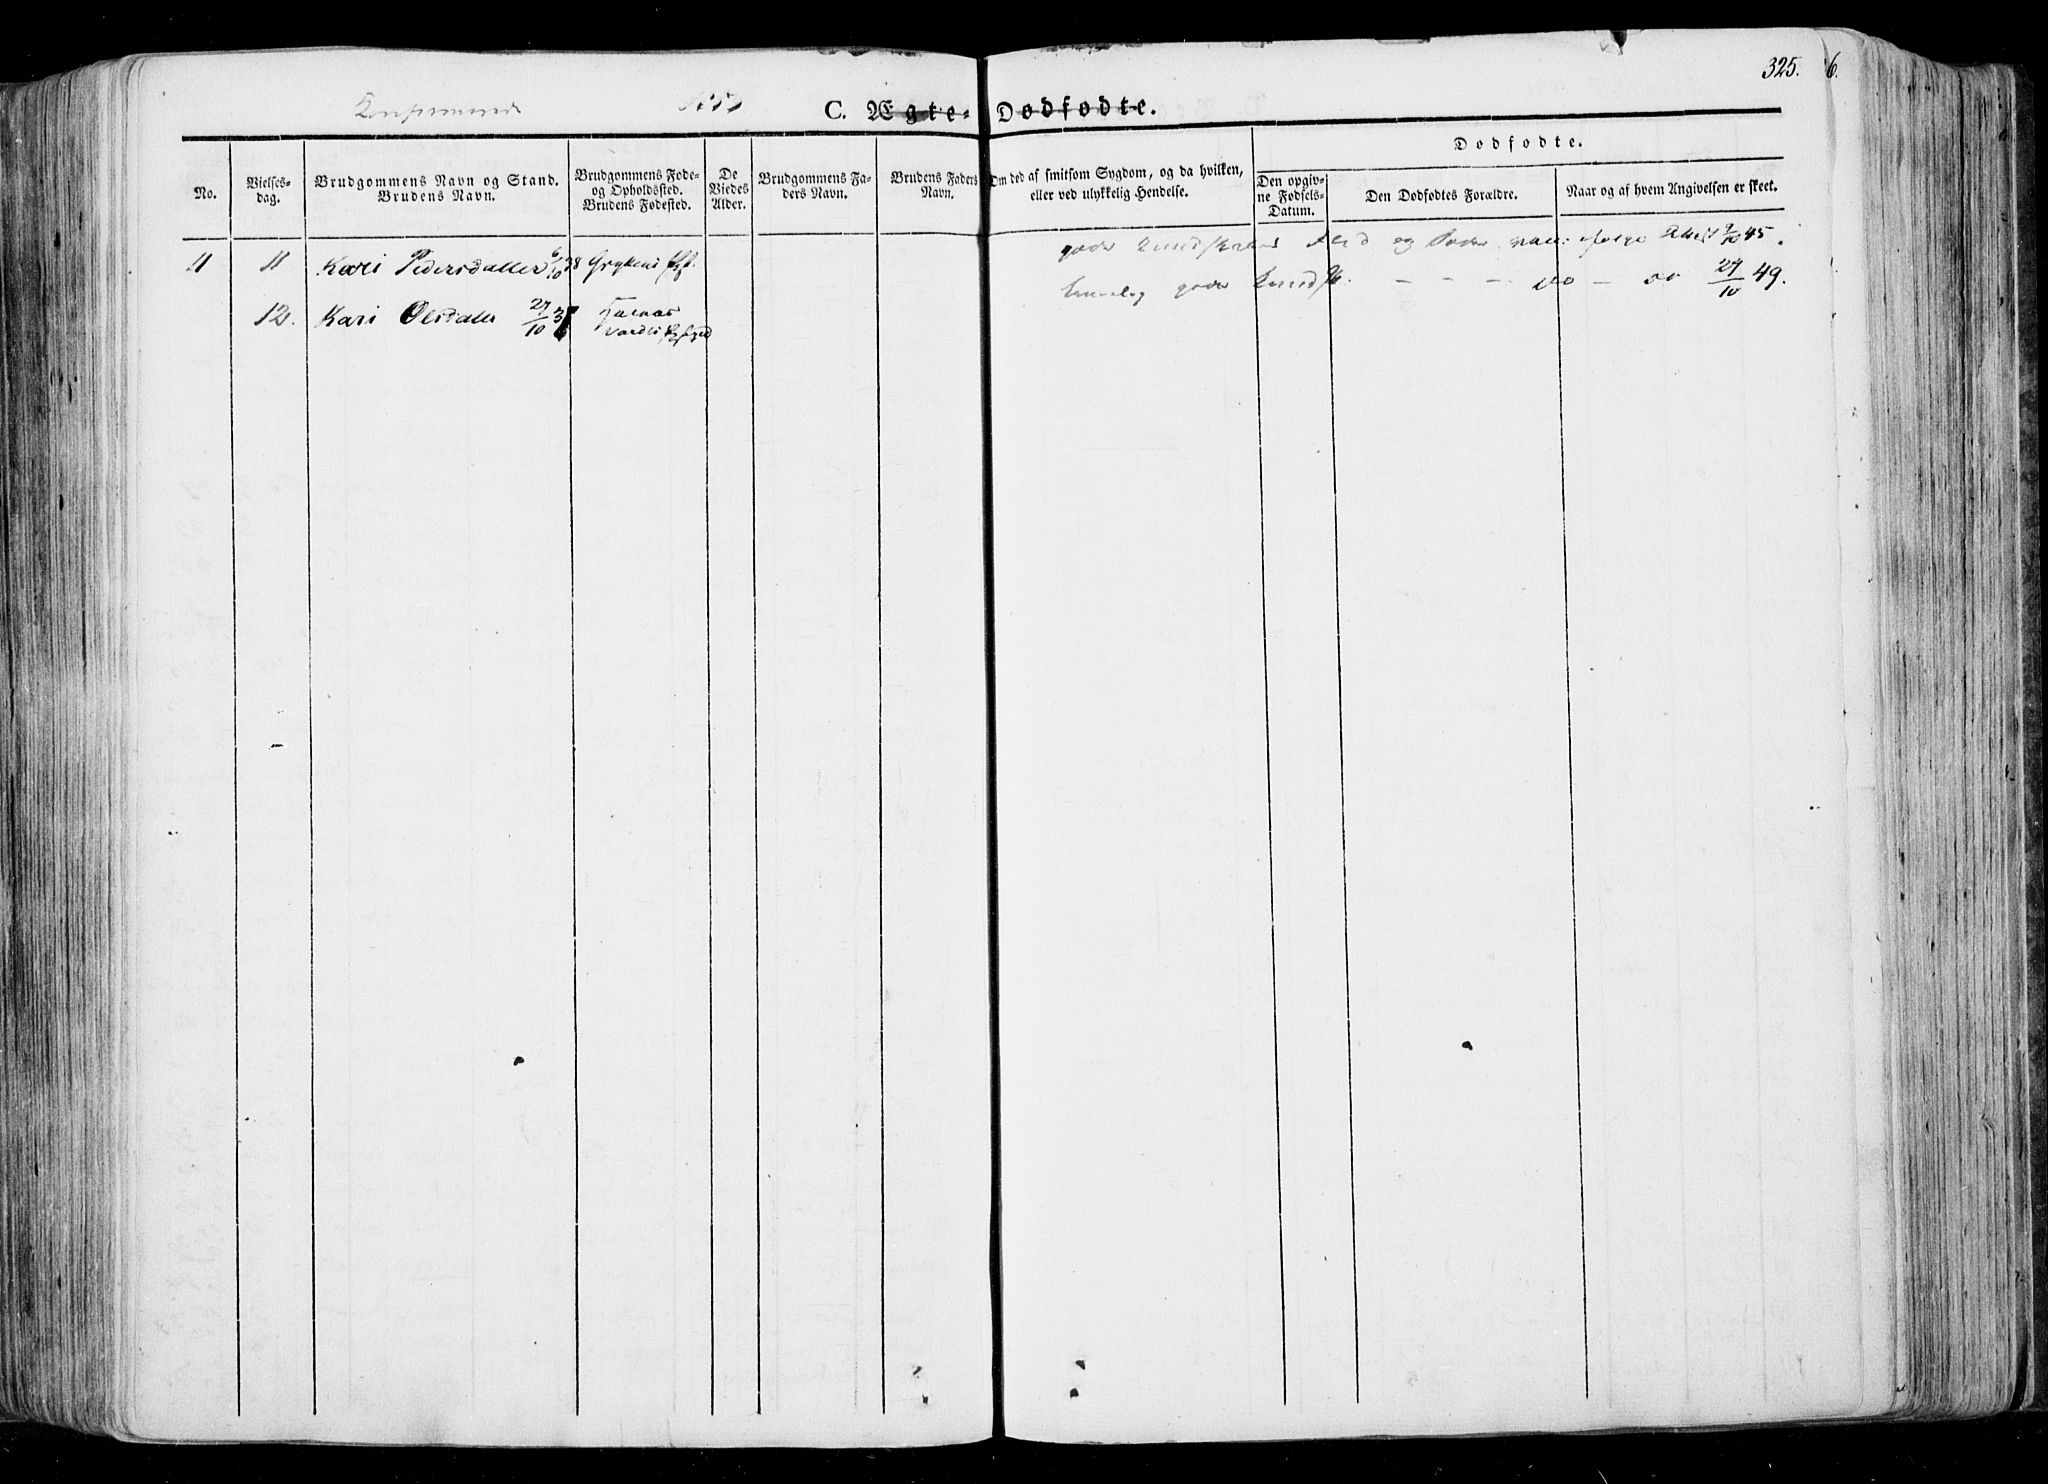 325. 6.
C. Ægte-Dødfødte.
Dødfødte.
No.
Vielses-
dag.
Brudgommens Navn og Stand.
Brudens Navn.
Brudgommens Føde-
og Opholdssted.
Brudens Fødested.
De
Viedes
Alder.
Brudgommens Fa-
ders Navn.
Brudens Faders
Navn.
Om død af smitsom Sygdom, og da hvilken,
eller ved ulykkelig Hendelse.
Den opgiv-
ne Fødsels-
Datum.
Den Dødfødtes Forældre.
Naar og af hvem Angivelsen er skeet.
11 11 Kari Pedersdatter 6/10 38
12. Kari Olsdatter 27/10
goder Kundskaber Flid og 45.
goder Kundsk. - - - do - do 27/10 49.